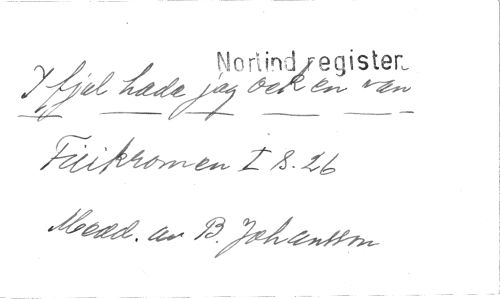 Nortind register.
I fjol hade jag ock en vän
Fiikromen I s. 26
Medd. av B. Johansson